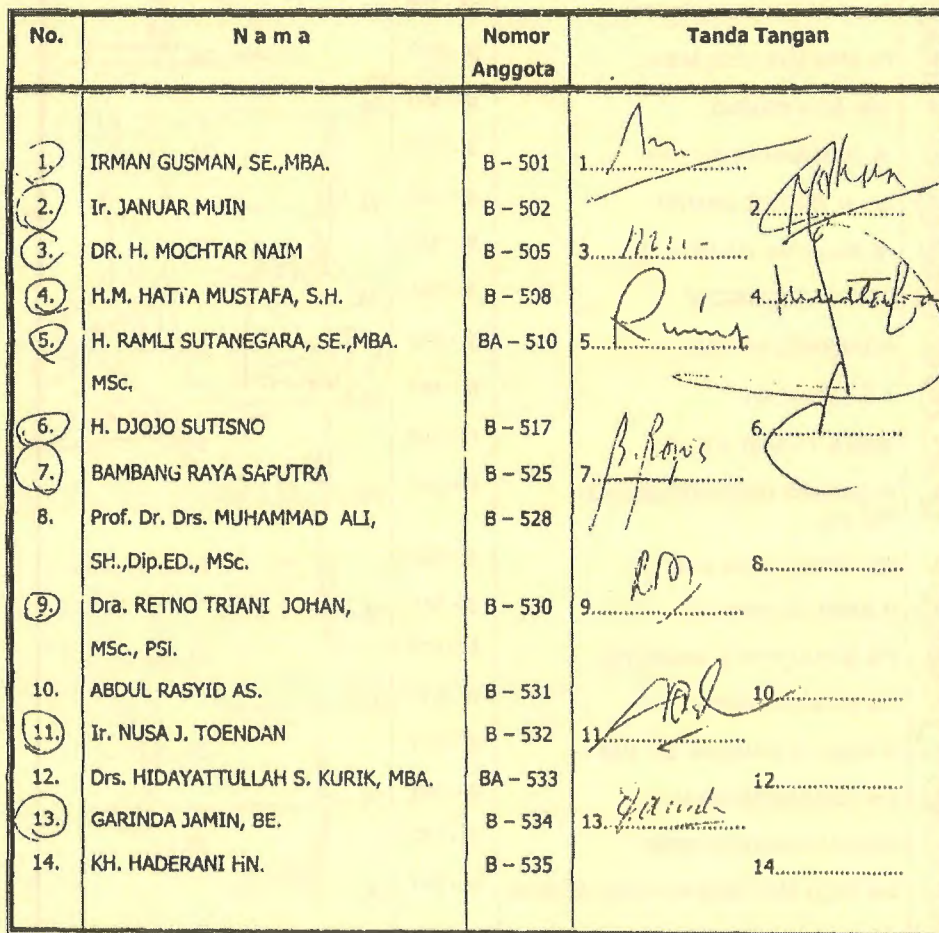 No. Nama Nomor Anggota Tanda Tangan
1. IRMAN GUSMAN, SE.,MBA. B – 501 1..........
2. Ir. JANUAR MUIN B – 502 2..........
3. DR. H. MOCHTAR NAIM B – 505 3..........
4. H.M. HATTA MUSTAFA, S.H. B – 508 4..........
5. H. RAMLI SUTANEGARA, SE.,MBA. BA – 510 5..........
MSc.
6. H. DJOJO SUTISNO B – 517 6..........
7. BAMBANG RAYA SAPUTRA B – 525 7..........
8. Prof. Dr. Drs. MUHAMMAD ALI, B – 528
SH.,Dip.ED., MSc. 8..........
9. Dra. RETNO TRIANI JOHAN, B – 530 9..........
MSc., PSi.
10. ABDUL RASYID AS. B – 531 10..........
11. Ir. NUSA J. TOENDAN B – 532 11..........
12. Drs. HIDAYATTULLAH S. KURIK, MBA. BA – 533 12..........
13. GARINDA JAMIN, BE. B – 534 13..........
14. KH. HADERANI HN. B – 535 14..........